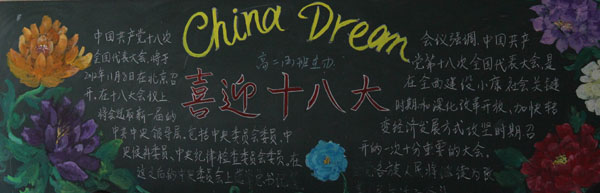 China Dream
高二(4)班主办
喜迎十八大
中国共产党十八次
全国代表大会,将于
2012年11月8日在北京召
开,在十八大会议上
将会选举新一届的
中共中央领导层,包括中央委员会委员,中
央候补委员、中央纪律检查委员会委员,在
会议强调,中国共产
党第十八次全国代表大会,是
在全面建设小康社会关键
时期和深化改革开放、加快转
变经济发展方式攻坚时期召
开的一次十分重要的大会。